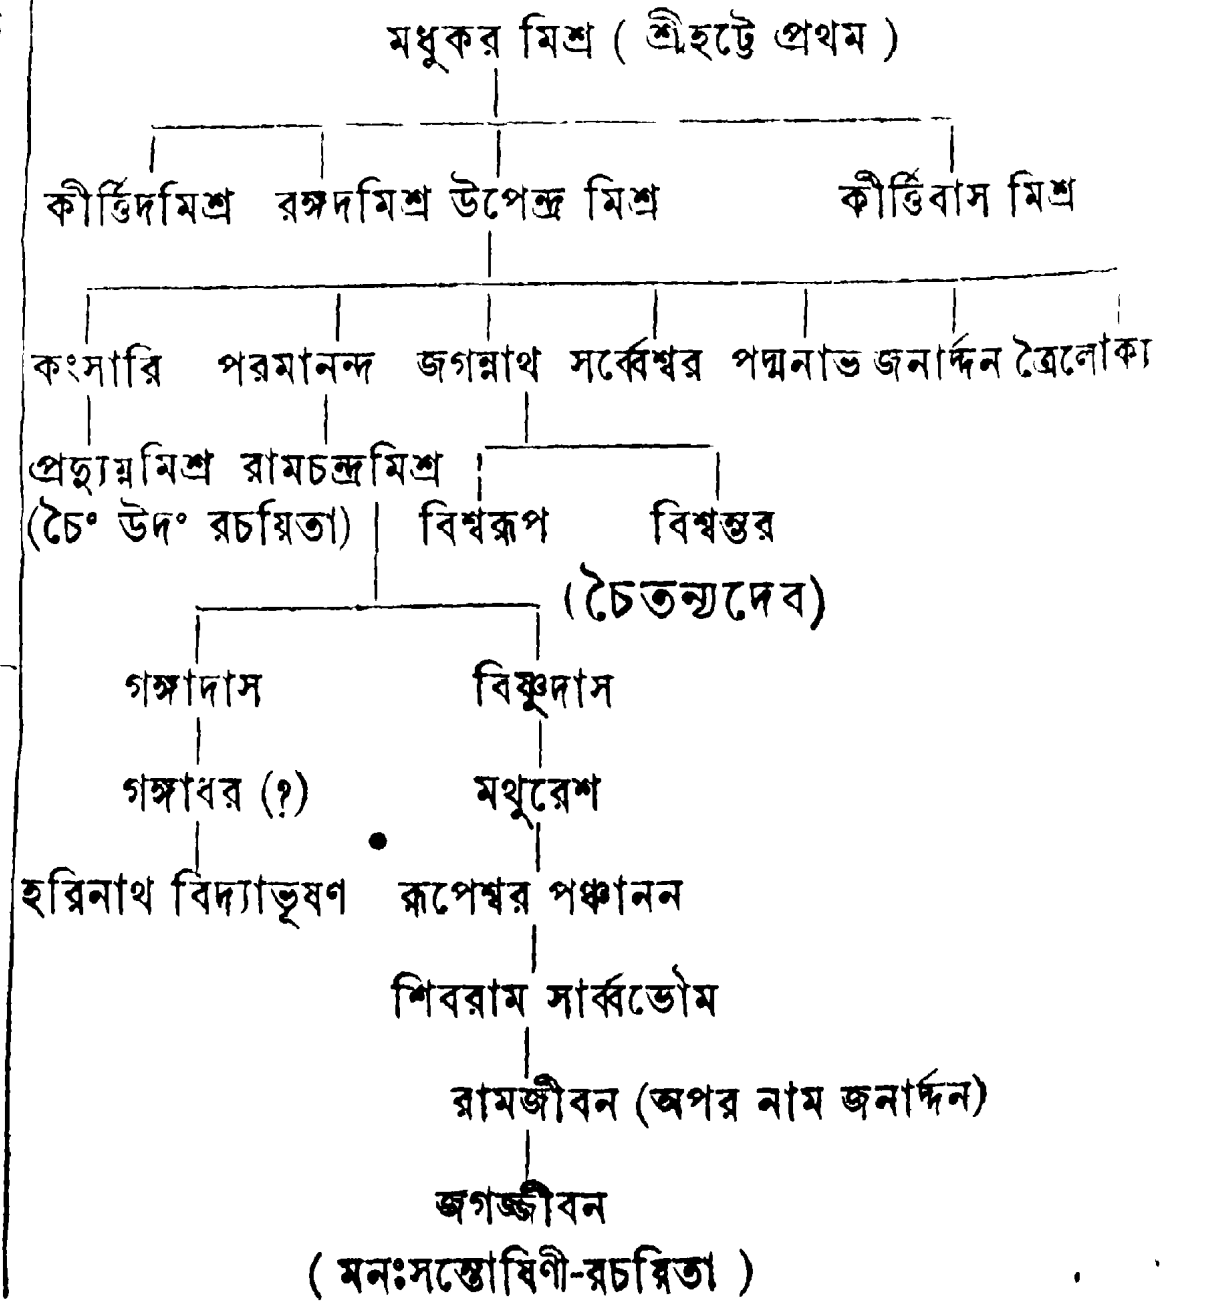 মধুকর মিশ্র ( শ্রীহট্টে প্রথম )
কীর্ত্তিদমিশ্র রঙ্গদমিশ্র উপেন্দ্র মিশ্র কীর্ত্তিবাস মিশ্র
কংসারি পরমানন্দ জগন্নাথ সর্ব্বেশ্বর পদ্মনাভ জনার্দ্দন ত্রৈলোক্য
প্রদ্যুম্নমিশ্র রামচন্দ্রমিশ্র
(চৈ° উদ° রচয়িতা) বিশ্বরূপ বিশ্বম্ভর
(চৈতন্যদেব)
গঙ্গাদাস বিষ্ণুদাস
গঙ্গাধর (?) মথুরেশ
হরিনাথ বিদ্যাভূষণ রূপেশ্বর পঞ্চানন
শিবরাম সার্ব্বভৌম
রামজীবন (অপর নাম জনার্দ্দন)
জগজ্জীবন
( মনঃসন্তোষিণী-রচয়িতা )